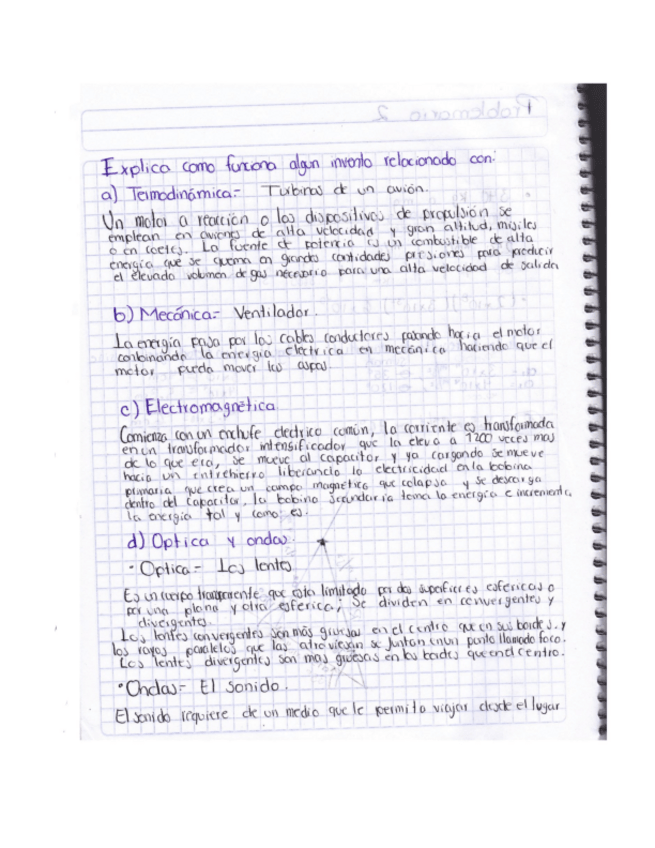 Problemario 2
Explica como funciona algun invento relacionado con:
a) Termodinámica:- Turbinas de un avión.
Un motor a reacción o los dispositivos de propulsión se
emplean en aviones de alta velocidad y gran altitud, misiles
o en cohetes. La fuente de potencia es un combustible de alta
energía que se quema en grandes cantidades presiones para producir
el elevado volumen de gas necesario para una alta velocidad de salida
b) Mecánica:- Ventilador.
La energía pasa por los cables conductores pasando hacia el motor
combinando la energía eléctrica en mecánica haciendo que el
motor pueda mover las aspas
c) Electromagnética
Comienza con un enchufe electrico común, la corriente es transformada
en un transformador intensificador que la eleva a 1200 veces mas
de lo que era, se mueve al capacitor y ya cargando se mueve
hacia un entrehierro liberando la electricidad en la bobina
primaria que crea un campo magnético que colapsa y se descarga
dentro del capacitor, la bobina secundaria toma la energía e incrementa
la energía tal y como es.
d) Optica y ondas.
• Optica:- Los lentes
Es un cuerpo transparente que esta limitado por dos superficies esfericas o
por una plana y otra esferica, se dividen en convergentes y
divergentes.
Los lentes convergentes son más gruesas en el centro que en sus bordes. y
los rayos paralelos que las atraviesan se juntan en un punto llamado foco.
Los lentes divergentes son mas gruesas en los bordes que en el centro.
• Ondas:- El sonido.
El sonido requiere de un medio que le permita viajar desde el lugar